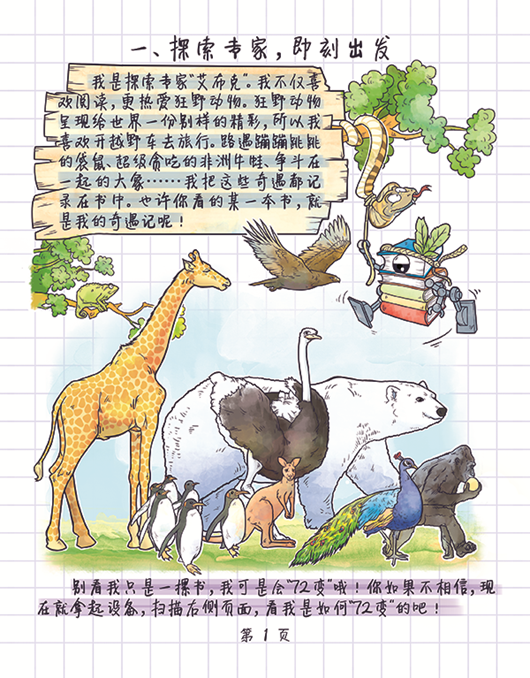 一、探索专家，即刻出发
我是探索专家“艾布克”。我不仅喜
欢阅读，更热爱狂野动物。狂野动物
呈现给世界一份别样的精彩，所以我
喜欢开越野车去旅行。路遇蹦蹦跳跳
的袋鼠、超级贪吃的非洲牛蛙、争斗在
一起的大象……我把这些奇遇都记
录在书中。也许你看的某一本书，就
是我的奇遇记呢！
别看我只是一摞书，我可是会“72变”哦！你如果不相信，现
在就拿起设备，扫描右侧页面，看我是如何“72变”的吧！
第 1 页